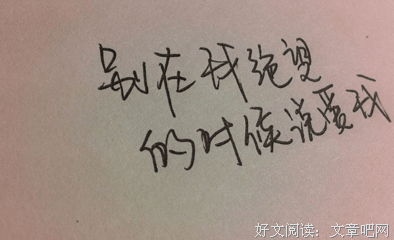 别在我绝望
的时候说爱我
好文阅读：文章吧网